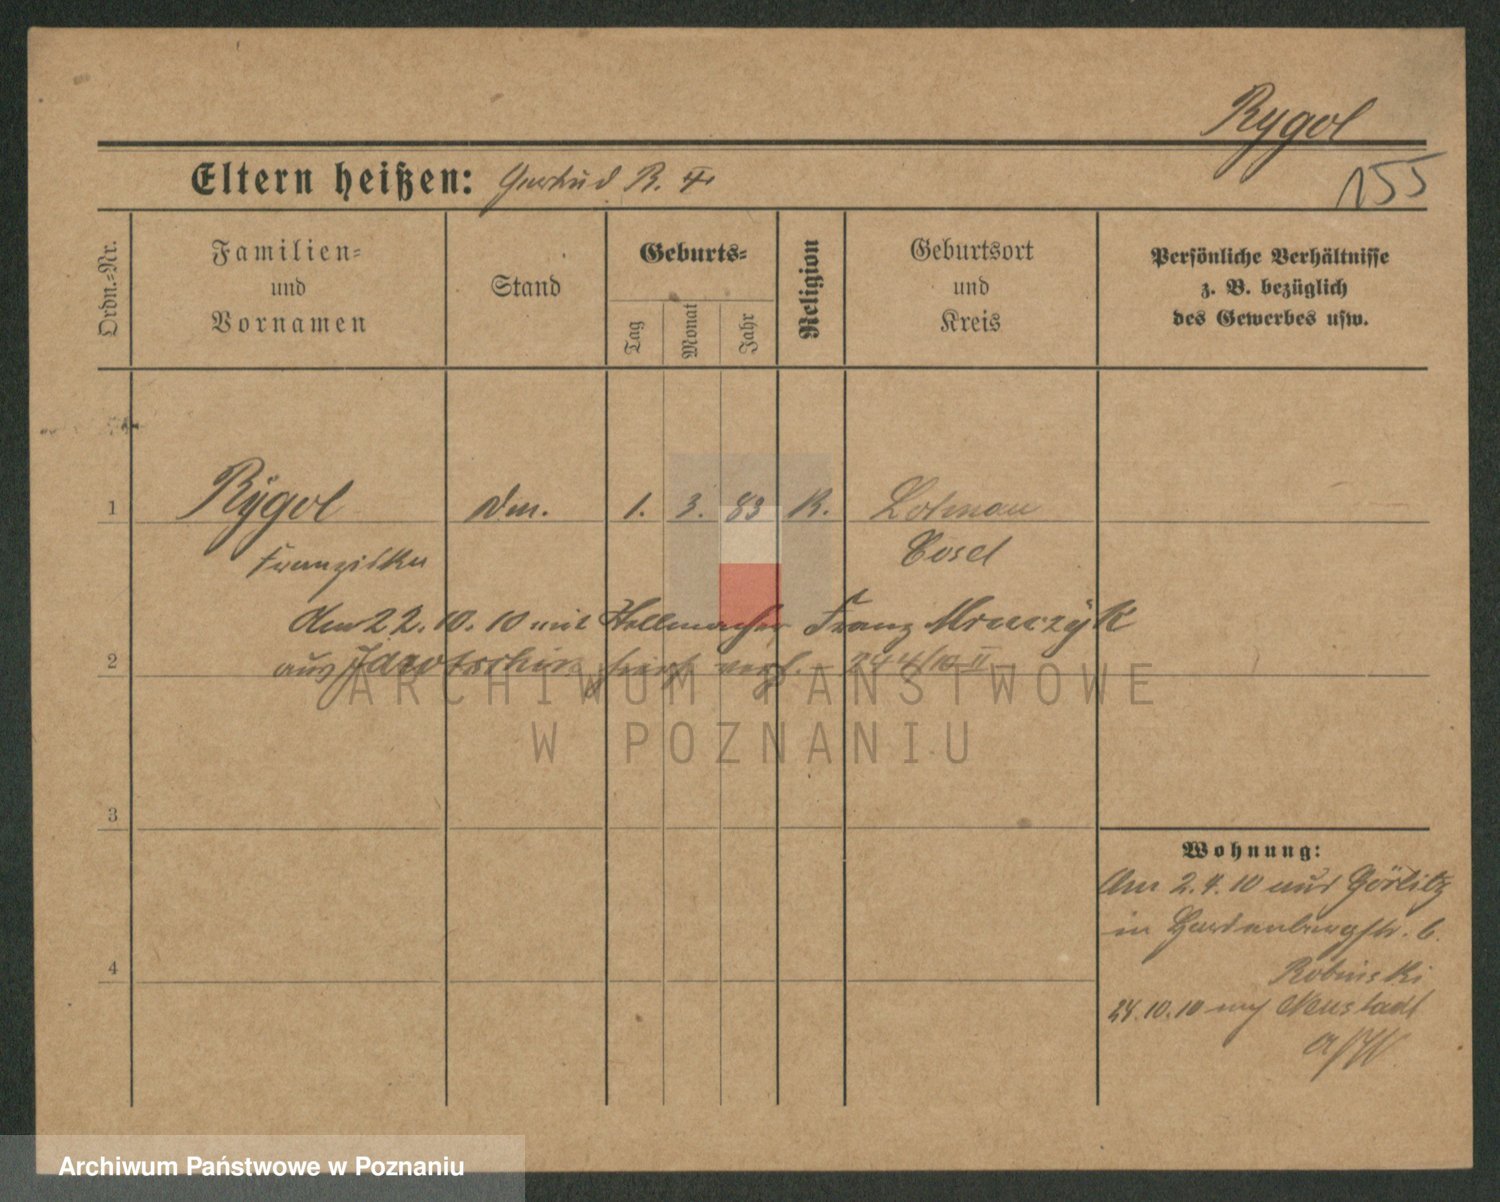 Rygol
155
Eltern heißen: Gertrud R. F
Ordn.-Nr.
Familien-
und
Vornamen
Stand
Geburts-
Tag
Monat
Jahr
Religion
Geburtsort
und
Kreis
Persönliche Verhältnisse
z. B. bezüglich
des Gewerbes usw.
1 Rygol 1. 3. 83 K.
Franziska
Cosel
Am 22. 10. 10 mit Franz
2 aus Jarotschin hier 10 II
ARCHIWUM PAŃSTWOWE
W POZNANIU
3
Wohnung:
Am 2. 4. 10 aus Görlitz
in Hardenbergstr. 6.
4
Robinski
24. 10. 10 nach Neustadt
a/W
Archiwum Państwowe w Poznaniu